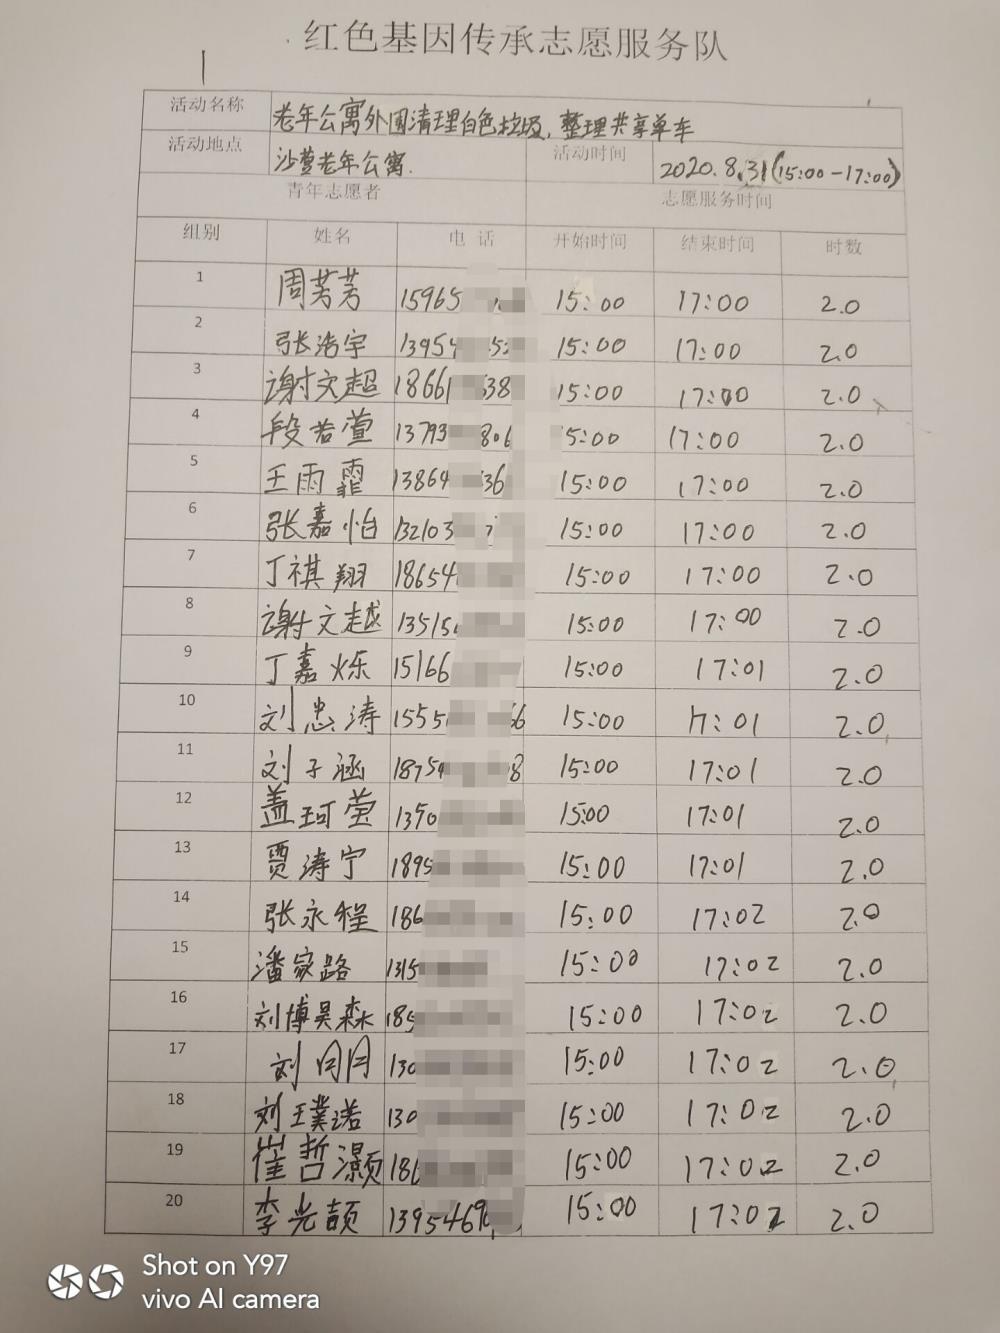 红色基因传承志愿服务队
活动名称 老年公寓外围清理白色垃圾,整理共享单车
活动地点 沙营老年公寓. 活动时间 2020.8.31(15:00-17:00)
青年志愿者 志愿服务时间
组别 姓名 电话 开始时间 结束时间 时数
1 周芳芳 15965 15:00 17:00 2.0
2 张浩宇 13954 15:00 17:00 2.0
3 谢文超 18661 38 15:00 17:00 2.0
4 段若萱 13793 806 5:00 17:00 2.0
5 王雨霏 13864 36 15:00 17:00 2.0
6 张嘉怡 132103 15:00 17:00 2.0
7 丁祺翔 18654 15:00 17:00 2.0
8 谢文越 13515 15:00 17:00 2.0
9 丁嘉烁 15166 15:00 17:01 2.0
10 刘忠涛 1555 66 15:00 17:01 2.0
11 刘子涵 18754 8 15:00 17:01 2.0
12 盖珂莹 1370 15:00 17:01 2.0
13 贾涛宁 1895 15:00 17:01 2.0
14 张永程 186 15:00 17:02 2.0
15 潘家路 1315 15:00 17:02 2.0
16 刘博昊森 185 15:00 17:02 2.0
17 刘月月 130 15:00 17:02 2.0
18 刘王璞诺 130 15:00 17:02 2.0
19 崔哲灏 186 15:00 17:02 2.0
20 李光颉 13954696 15:00 17:02 2.0
Shot on Y97
vivo AI camera